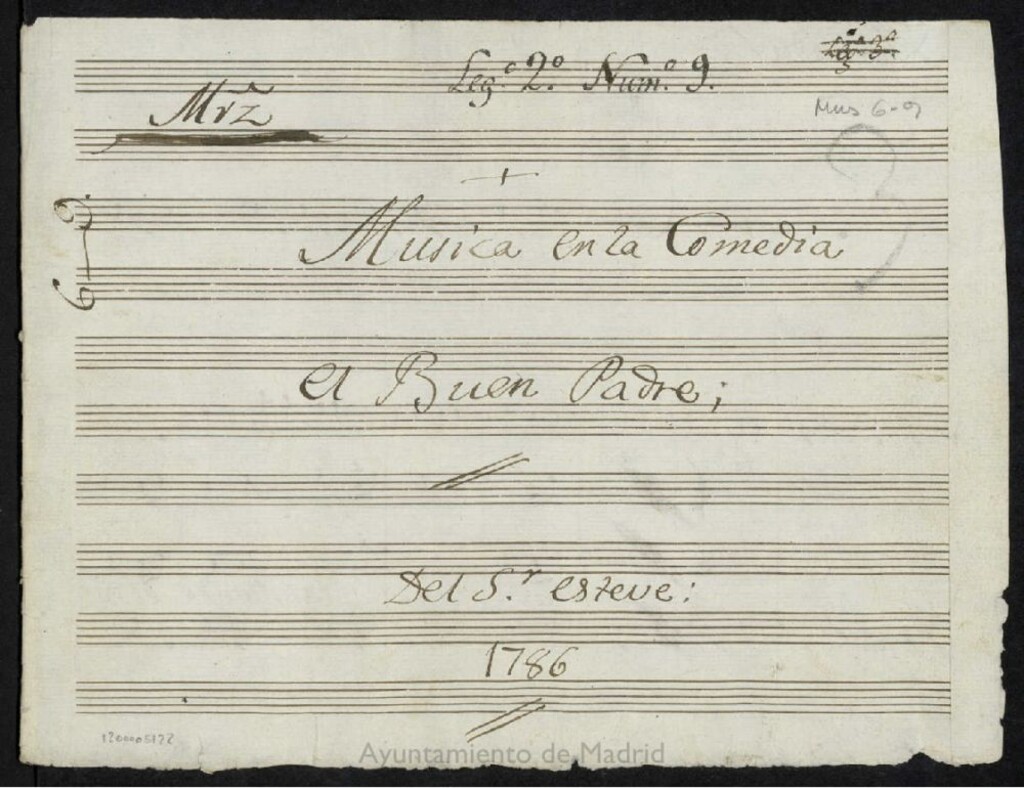 Leg.º 2.º Num.º 9.
Mrz
Mus 6-9
+
6-9.
Musica en la Comedia
el Buen Padre;
Del S.r esteve:
1786
Ayuntamiento de Madrid